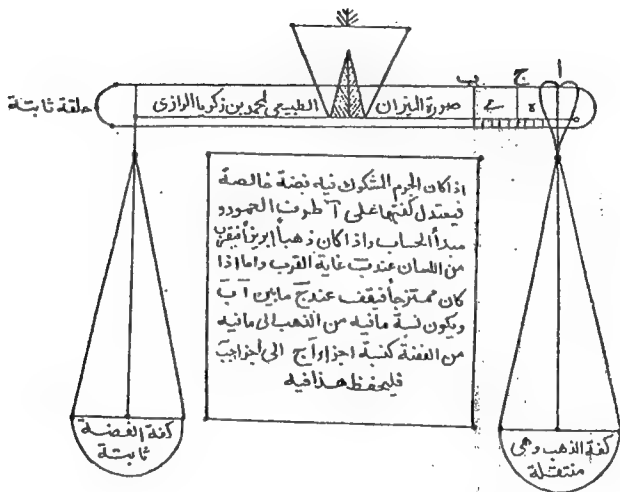 ا
ج
ب
حلقة ثابتة
صورة الميزان الطبيعي لمحمد بن زكريا الرازي
اذا كان الجرم المشكوك فيه فضة خالصة
فيعتدل كفتها على آ طرف العمود و
مبدأ الحساب واذا كان ذهباً إبريزاً فيقرب
من اللسان عند ب غاية القرب واما اذا
كان ممتزجاً فيقف عند ج ما بين آ ب
ويكون نسبة مافيه من الذهب الى مافيه
من الفضة كنسبة اجزاء آ ج الى أجزا ج ب
فليحفظ هذا فيه
كفة الفضة
ثابتة
كفة الذهب وهي
منتقلة